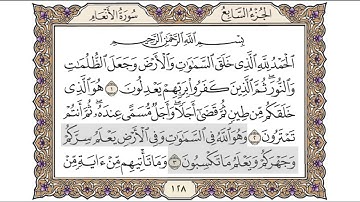 الجزء السابع سورة الأنعام
بِسْمِ ٱللَّهِ ٱلرَّحْمَٰنِ ٱلرَّحِيمِ
ٱلْحَمْدُ لِلَّهِ ٱلَّذِى خَلَقَ ٱلسَّمَٰوَٰتِ وَٱلْأَرْضَ وَجَعَلَ ٱلظُّلُمَٰتِ
وَٱلنُّورَ ثُمَّ ٱلَّذِينَ كَفَرُوا۟ بِرَبِّهِمْ يَعْدِلُونَ ١ هُوَ ٱلَّذِى
خَلَقَكُم مِّن طِينٍ ثُمَّ قَضَىٰٓ أَجَلًا وَأَجَلٌ مُّسَمًّى عِندَهُۥ ثُمَّ أَنتُمْ
تَمْتَرُونَ ٢ وَهُوَ ٱللَّهُ فِى ٱلسَّمَٰوَٰتِ وَفِى ٱلْأَرْضِ يَعْلَمُ سِرَّكُمْ
وَجَهْرَكُمْ وَيَعْلَمُ مَا تَكْسِبُونَ ٣ وَمَا تَأْتِيهِم مِّنْ ءَايَةٍ مِّنْ
١٢٨